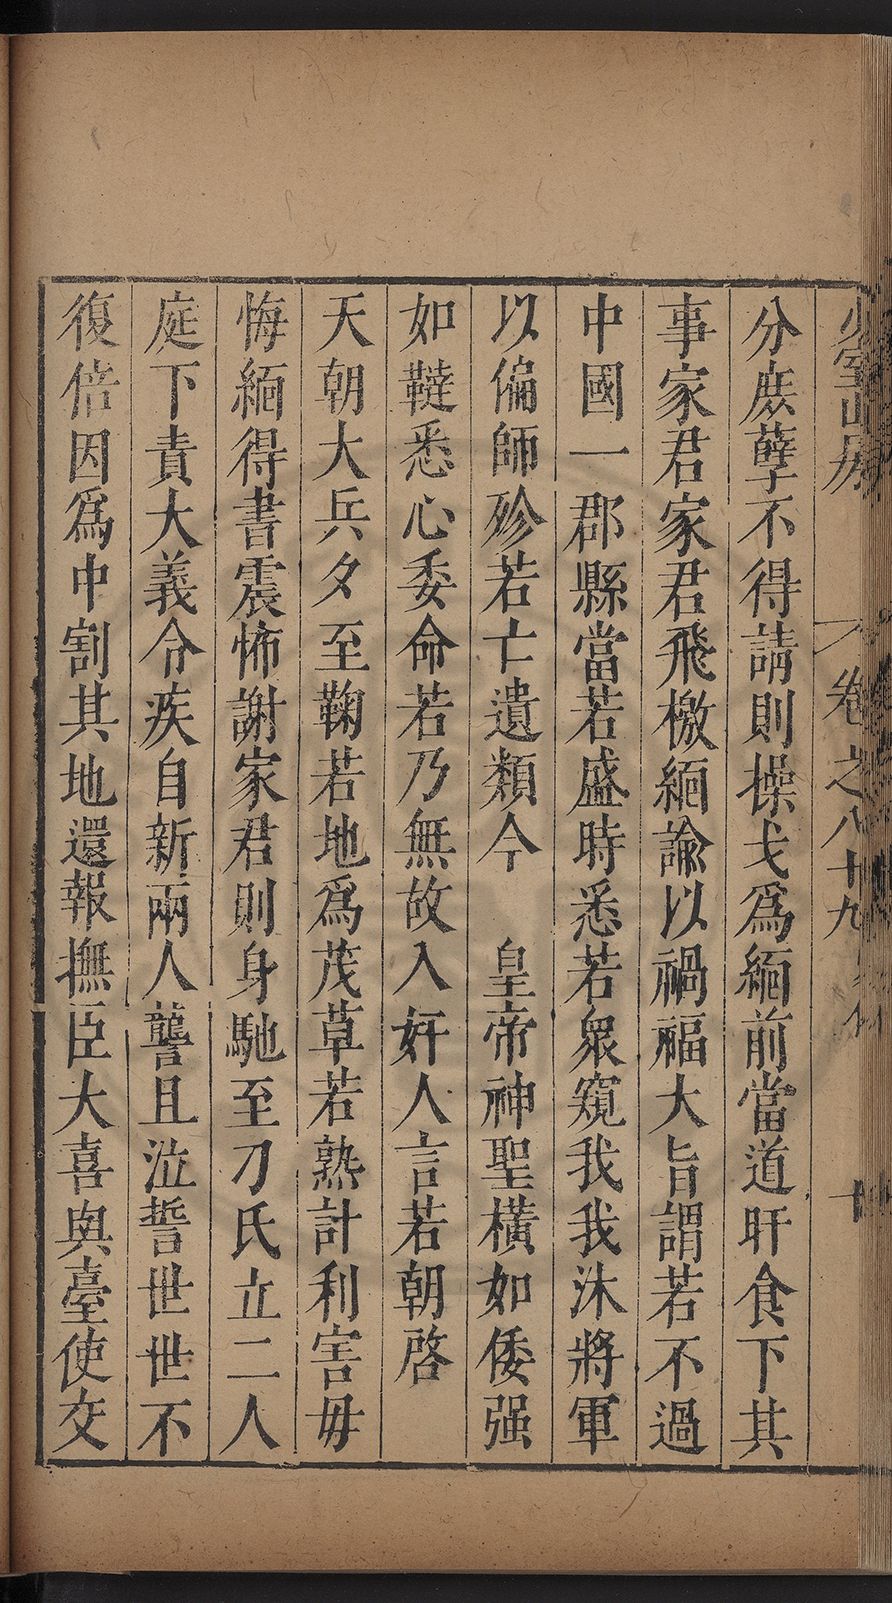 少室山房
卷之八十九
十
分庶孽不得請則操戈爲緬前當道旰食下其
事家君家君飛檄緬諭以禍福大旨謂若不過
中國一郡縣當若盛時悉若衆窺我我沐將軍
以偏師殄若亡遺類今　皇帝神聖橫如倭强
如韃悉心委命若乃無故入奸人言若朝啓
天朝大兵夕至鞠若地爲茂草若熟計利害毋
悔緬得書震怖謝家君則身馳至刁氏立二人
庭下責大義令疾自新兩人讋且泣誓世世不
復倍因爲中割其地還報撫臣大喜與臺使交